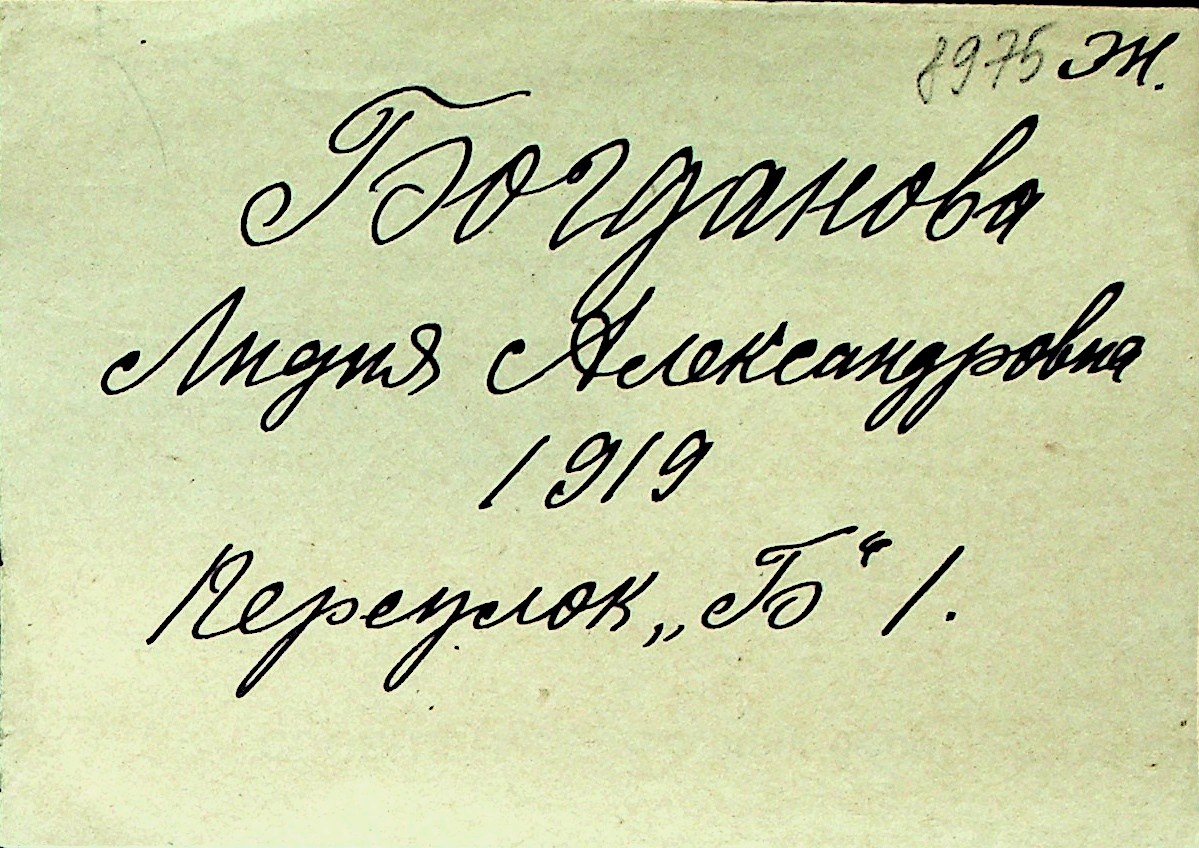 8975 Ж.
Богданова
Лидия Александровна
1919
Переулок „Б“ 1.